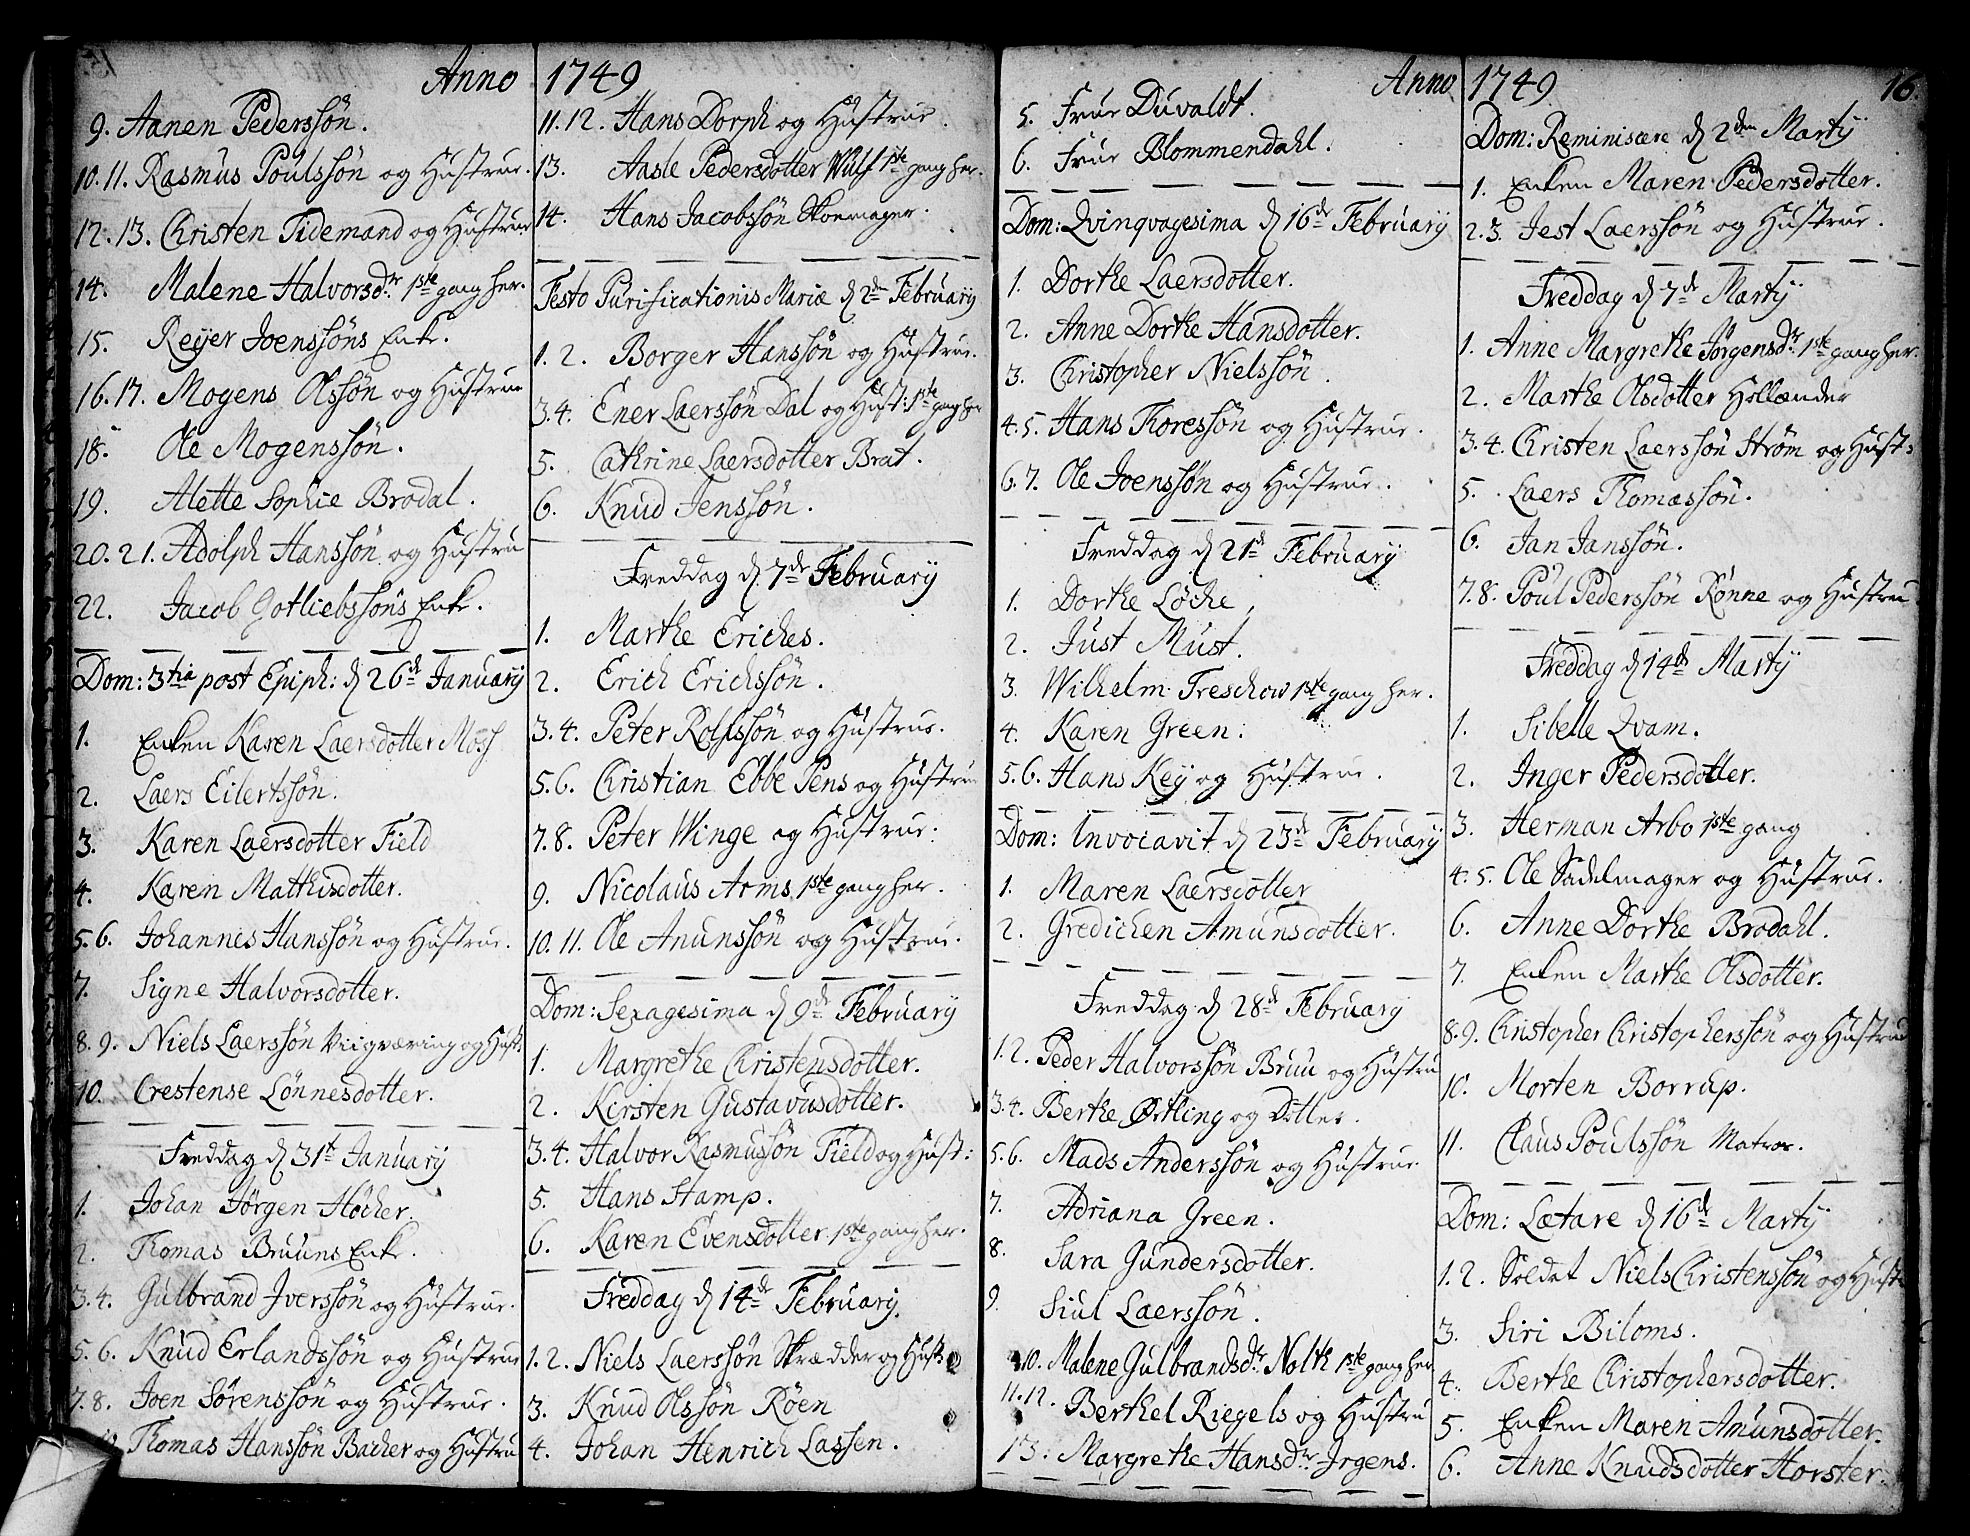 Anno 1749
9. Aanen Pederssön.
10. 11. Rasmus Poulssön og Hustrue.
12. 13. Christen Tidemand og Hustrue
14. Malene Halvorsdr. 1ste gang her.
15. Reyer Joenssöns Enke.
16. 17. Mogens Olssön og Hustrue
18. Ole Mogenssön.
19. Alette Sophie Brodal.
20. 21. Adolph Hanssön og Hustru
22. Jacob Gotliebssöns Enke.
Dom: 3tia post Epiph: d 26de January
1. Enken Karen Laersdotter Moss
2. Laers Eilertssön.
3. Karen Laersdotter Field
4. Karen Mathisdotter.
5. 6. Johannes Hanssön og Hustrue.
7. Signe Halvorsdotter.
8. 9. Niels Laerssön Viigværing og Hust:
10. Crestense Lönnesdotter.
Freddag d 31t January
1. Johan Jörgen Höcher.
2. Thomas Bruuns Enke.
3. 4. Gulbrand Iverssön og Hustrue.
5. 6. Knud Erlandssön og Hustrue
7. 8. Joen Sörenssön og Hustrue.
Thomas Hanssön Bacher og Hustru
11. 12. Hans Dorph og Hustrue.
13. Aasle Pedersdotter Wulf 1ste gang her.
14. Hans Jacobssön Skoemager.
Festo Purificationis Mariæ d 2de February
1. 2. Borger Hanssön og Hustrue.
3. 4. Ener Laerssön Dal og Hust: 1ste gang her
5. Cathrine Laersdotter Brat.
6. Knud Jenssön.
Freddag d. 7de February
1. Marthe Eriches.
2. Erich Erichssön.
3. 4. Peter Rolfssön og Hustrue.
5. 6. Christian Ebbe Pens og Hustrue
7. 8. Peter Winge og Hustrue.
9. Nicolaus Arms 1ste gang her.
10. 11. Ole Anunssön og Hustrue.
Dom: Sexagesima d 9de February
1. Margrethe Christensdotter.
2. Kirsten Gustavusdotter.
3. 4. Halvor Rasmussön Field og Hust:
5. Hans Stamp.
6. Karen Evensdotter 1ste gang her.
Freddag d 14de February.
1. 2. Niels Laerssön Skrædder og Hust:
3. Knud Olssön Röen
4. Johan Henrich Lassen.
Anno 1749 16.
5. Frue Duvaldt.
6. Frue Blommendahl.
Dom: Qvinqvagesima d 16de February
1. Dorthe Laersdotter.
2. Anne Dorthe Hansdotter.
3. Christopher Nielssön.
4. 5. Hans Thoressön og Hustrue.
6. 7. Ole Joenssön og Hustrue.
Freddag d 21de February
1. Dorthe Löche,
2. Just Must.
3. Wilhelm Treschow 1ste gang her.
4. Karen Green.
5. 6. Hans Key og Hustrue.
Dom: Invocavit d 23de February
1. Maren Laersdotter
2. Gredichen Amunsdotter.
Freddag d 28de February
1. 2. Peder Halvorssön Bruu og Hustru
3. 4. Berthe Ørtling og Dotter.
5. 6. Mads Anderssön og Hustrue
7. Adriana Green.
8. Sara Gundersdotter.
9. Siul Laerssön.
10. Malene Gulbrandsdr. Nolth 1ste gang her
11. 12. Berthel Riegels og Hustru
13. Margrethe Hansdr. Irgens.
Dom: Reminiscere d 2den Marty
1. Enken Maren Pedersdotter.
2. 3. Jest Laerssön og Hustrue.
Freddag d 7de Marty
1. Anne Margrethe Jörgensdr. 1ste gang her.
2. Marthe Olsdotter Hollænder
3. 4. Christen Laerssön Ström og Hust:
5. Laers Thomassön.
6. Jan Janssön.
7. 8. Poul Pederssön Rönne og Hustru
Freddag d 14de Marty
1. Sibelle Qvam.
2. Inger Pedersdotter.
3. Herman Arbo 1ste gang
4. 5. Ole Sadelmager og Hustrue.
6. Anne Dorthe Brodahl.
7. Enken Marthe Olsdotter.
8. 9. Christopher Christopherssön og Hustrue
10. Morten Borrup.
11. Claus Poulssön Matros.
Dom: Lætare d 16de Marty
1. 2. Soldat Niels Christenssön og Hust:
3. Siri Biloms.
4. Berthe Christophersdotter.
5. Enken Maren Amunsdotter.
6. Anne Knudsdotter Horster.